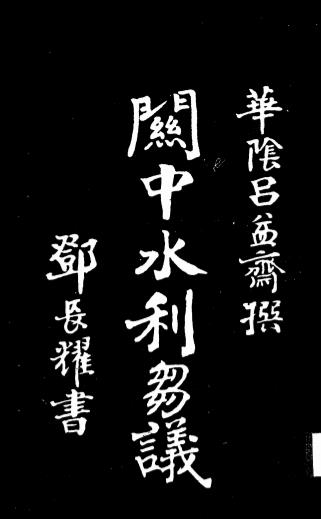 華陰呂益齋撰
關中水利芻議
鄧長耀書